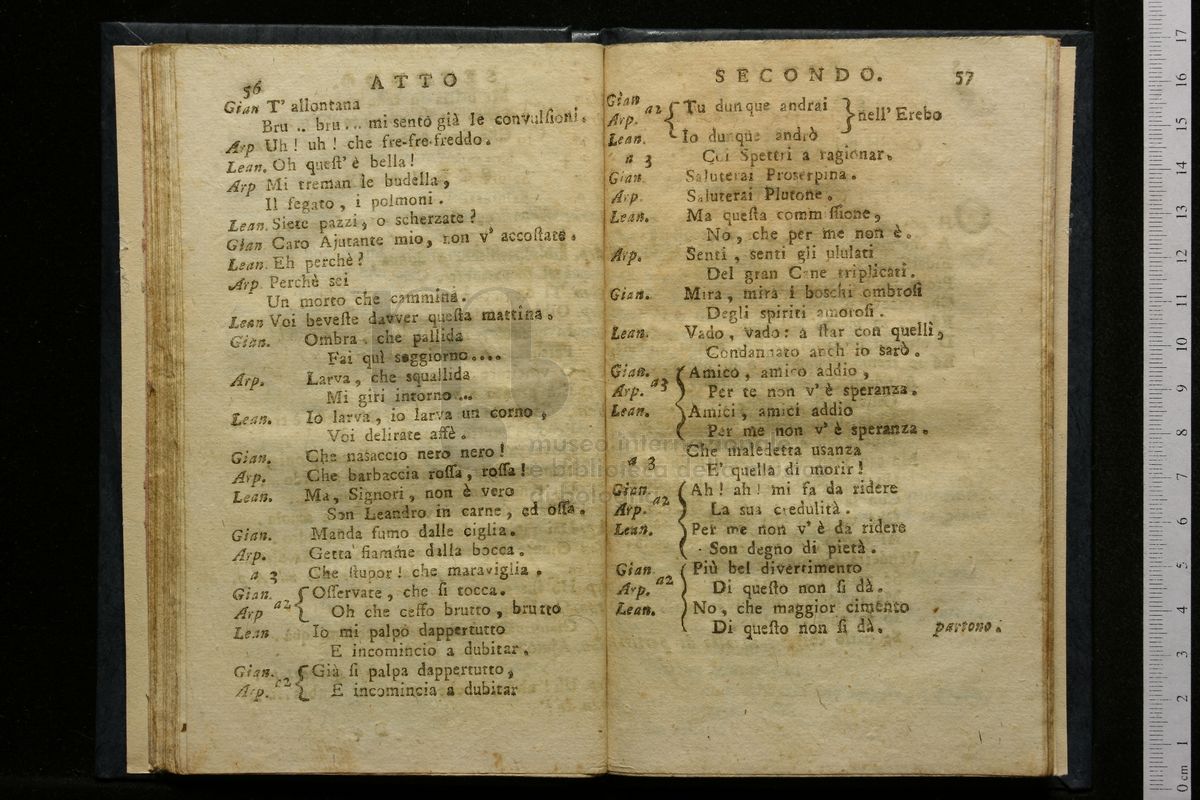 56
ATTO
Gian T' allontana
Bru .. bru ... mi sento già le convulſioni.
Arp Uh ! uh ! che fre-fre-freddo.
Lean. Oh queſt' è bella !
Arp Mi treman le budella,
Il fegato, i polmoni.
Lean. Siete pazzi, o scherzate ?
Gian Caro Ajutante mio, non v' accoſtate.
Lean. Eh perchè ?
Arp. Perchè sei
Un morto che cammina.
Lean Voi beveſte davver queſta mattina.
Gian. Ombra che pallida
Fai quì soggiorno....
Arp. Larva, che squallida
Mi giri intorno...
Lean. Io larva, io larva un corno,
Voi delirate affè.
Gian. Che nasaccio nero nero !
Arp. Che barbaccia roſſa, roſſa !
Lean. Ma, Signori, non è vero
Son Leandro in carne, ed oſſa.
Gian. Manda fumo dalle ciglia.
Arp. Getta fiamme dalla bocca.
a 3 Che ſtupor ! che maraviglia.
Gian. Oſſervate, che ſi tocca.
Arp a2 Oh che ceffo brutto, brutto
Lean Io mi palpo dappertutto
E incomincio a dubitar.
Gian. Già ſi palpa dappertutto,
Arp. a2 E incomincia a dubitar
SECONDO.
57
Gian a2 Tu dunque andrai
Arp. nell' Erebo
Lean. Io dunque andrò
a 3 Coi Spettri a ragionar.
Gian. Saluterai Proserpina.
Arp. Saluterai Plutone.
Lean. Ma queſta commiſſione,
No, che per me non è.
Arp. Senti, senti gli ululati
Del gran Cane triplicati.
Gian. Mira, mira i boschi ombroſi
Degli spiriti amoroſi.
Lean. Vado, vado: a ſtar con quelli,
Condannato anch' io sarò.
Gian. Amico, amico addio,
Arp. a3 Per te non v' è speranza.
Lean. Amici, amici addio
Per me non v' è speranza.
Che maledetta usanza
a 3 E' quella di morir !
Gian. Ah ! ah ! mi fa da ridere
Arp. a2 La sua credulità.
Lean. Per me non v' è da ridere
Son degno di pietà.
Gian Più bel divertimento
Arp. a2 Di queſto non ſi dà.
Lean. No, che maggior cimento
Di queſto non ſi dà. partono.
museo internazionale
e biblioteca della musica
di bologna
0 cm 1 2 3 4 5 6 7 8 9 10 11 12 13 14 15 16 17